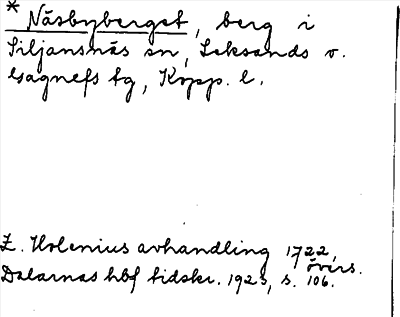 * Näsbyberget, berg i
Siljansnäs sn, Leksands o.
Gagnefs tg, Kopp. l.
E. Holenius avhandling 1722, övers.
Dalarnas hbf tidskr. 1923, s. 106.